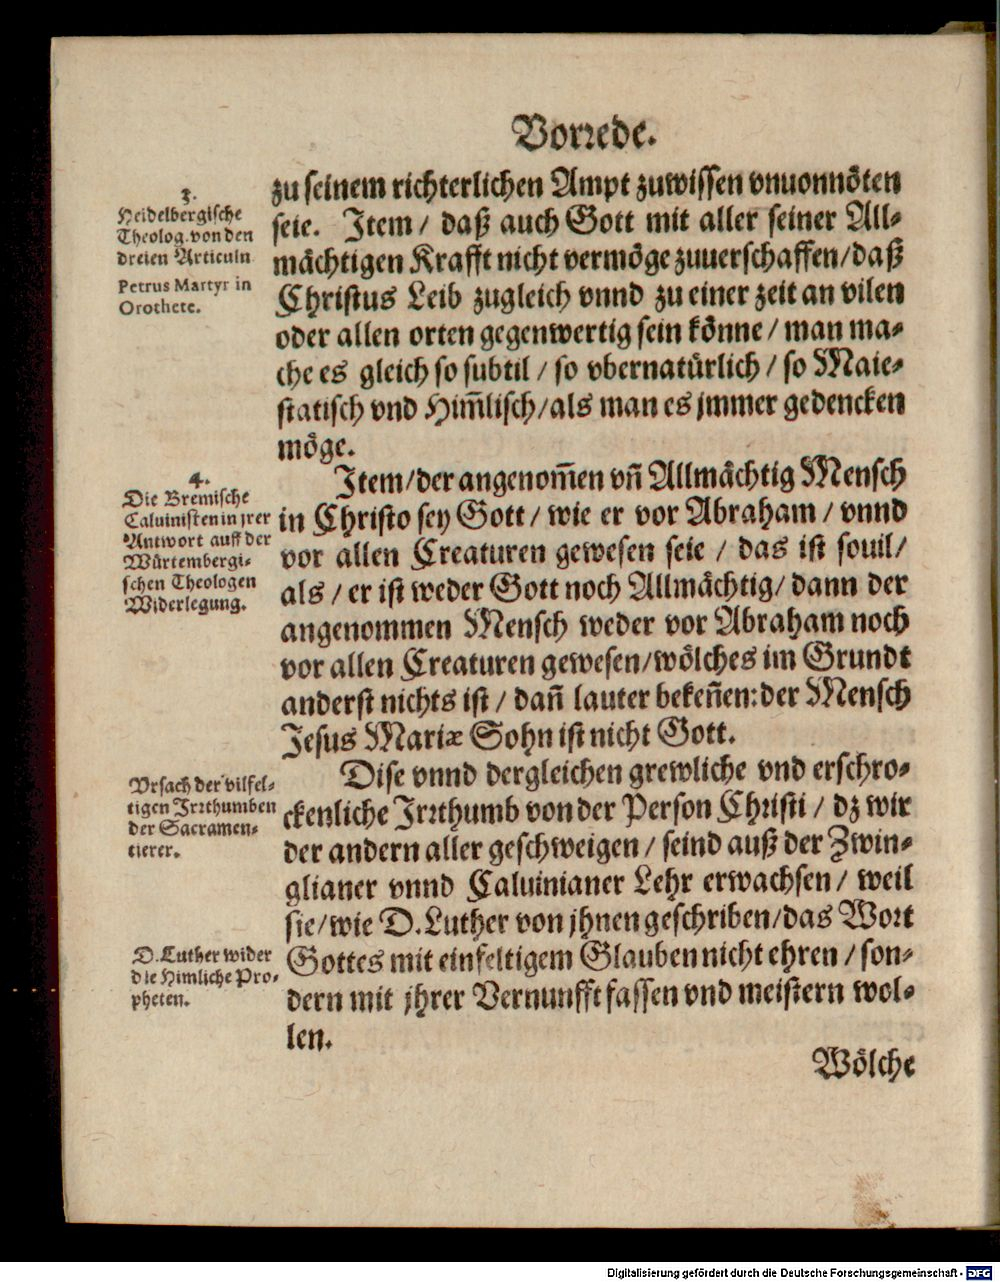 Vorrede.
3.
Heidelbergische
Theolog. von den
dreien Articuln
Petrus Martyr in
Orothete.
zu seinem richterlichen Ampt zuwissen vnuonnöten
seie. Item / daß auch Gott mit aller seiner All-
mächtigen Krafft nicht vermöge zuuerschaffen / daß
Christus Leib zugleich vnnd zu einer zeit an vilen
oder allen orten gegenwertig sein könne / man ma-
che es gleich so subtil / so vbernatürlich / so Maie-
statisch vnd Him̃lisch / als man es jmmer gedencken
möge.
4.
Die Bremische
Caluinisten in jrer
Antwort auff der
Würtembergi-
schen Theologen
Widerlegung.
Item / der angenom̃en vñ Allmächtig Mensch
in Christo sey Gott / wie er vor Abraham / vnnd
vor allen Creaturen gewesen seie / das ist souil /
als / er ist weder Gott noch Allmächtig / dann der
angenommen Mensch weder vor Abraham noch
vor allen Creaturen gewesen / wölches im Grundt
anderst nichts ist / dañ lauter bekeñen: der Mensch
Jesus Mariæ Sohn ist nicht Gott.
Vrsach der vilfel-
tigen Irrthumben
der Sacramen-
tierer.
Dise vnnd dergleichen grewliche vnd erschro-
ckenliche Irrthumb von der Person Christi / dz wir
der andern aller geschweigen / seind auß der Zwin-
glianer vnnd Caluinianer Lehr erwachsen / weil
sie / wie D. Luther von jhnen geschriben / das Wort
D. Luther wider
die Himliche Pro-
pheten.
Gottes mit einfeltigem Glauben nicht ehren / son-
dern mit jhrer Vernunfft fassen vnd meistern wol-
len.
Wölche
Digitalisierung gefördert durch die Deutsche Forschungsgemeinschaft - DFG